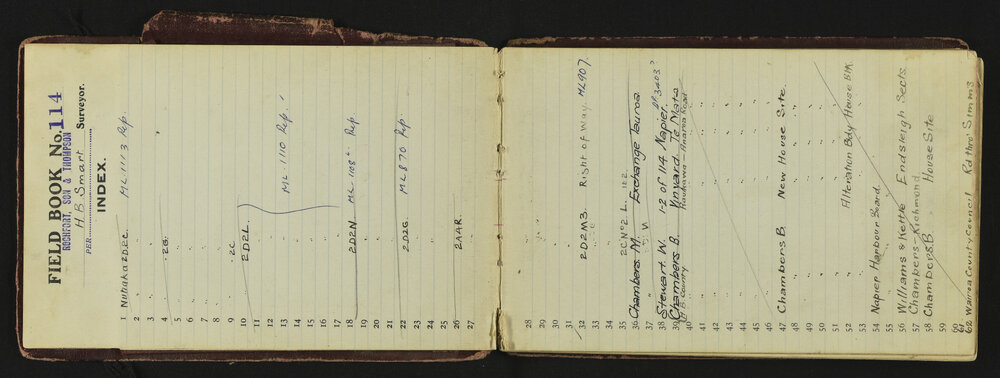 FIELD BOOK No. 114
ROCHFORT, SON & THOMPSON
PER H.B. Smart Surveyor.
INDEX.
1 Nuhaka 2D2C. ML 1113 Rep
2 " "
3 " "
4 " 2G.
5 " "
6 " "
7 " "
8 " "
9 " 2C
10 2D2L
11
12
13 ML 1110 Rep.
14
15
16
17
18 2D2N ML 1108 Rep
19
20
21
22 2D2G ML 870 Rp
23
24
25
26 2AAR.
27
28 "
29 "
30 "
31 "
32 2D2M3. Right of Way ML907.
33 "
34
35 2C No 2 L.
36 Chambers M. Exchange Tauroa
37 " "
38 Stewart W. 1-2 of 114 Napier. DP 3403
39 Chambers B. Vinyard Te Mata
40 H.B. County
41 " "
42 " "
43 " "
44 " "
45 " "
46 " "
47 Chambers B. New House Site.
48 " "
49 " "
50 " "
51 " "
52 " Alteration Bdy House Blk.
53 " "
54 Napier Harbour Board.
55 "
56 Williams & Kettle Endsleigh Sects.
57 Chambers - Richmond
58 Chambers B House Site
59
60
61
62 Wairoa County Council Rd thro' Simms